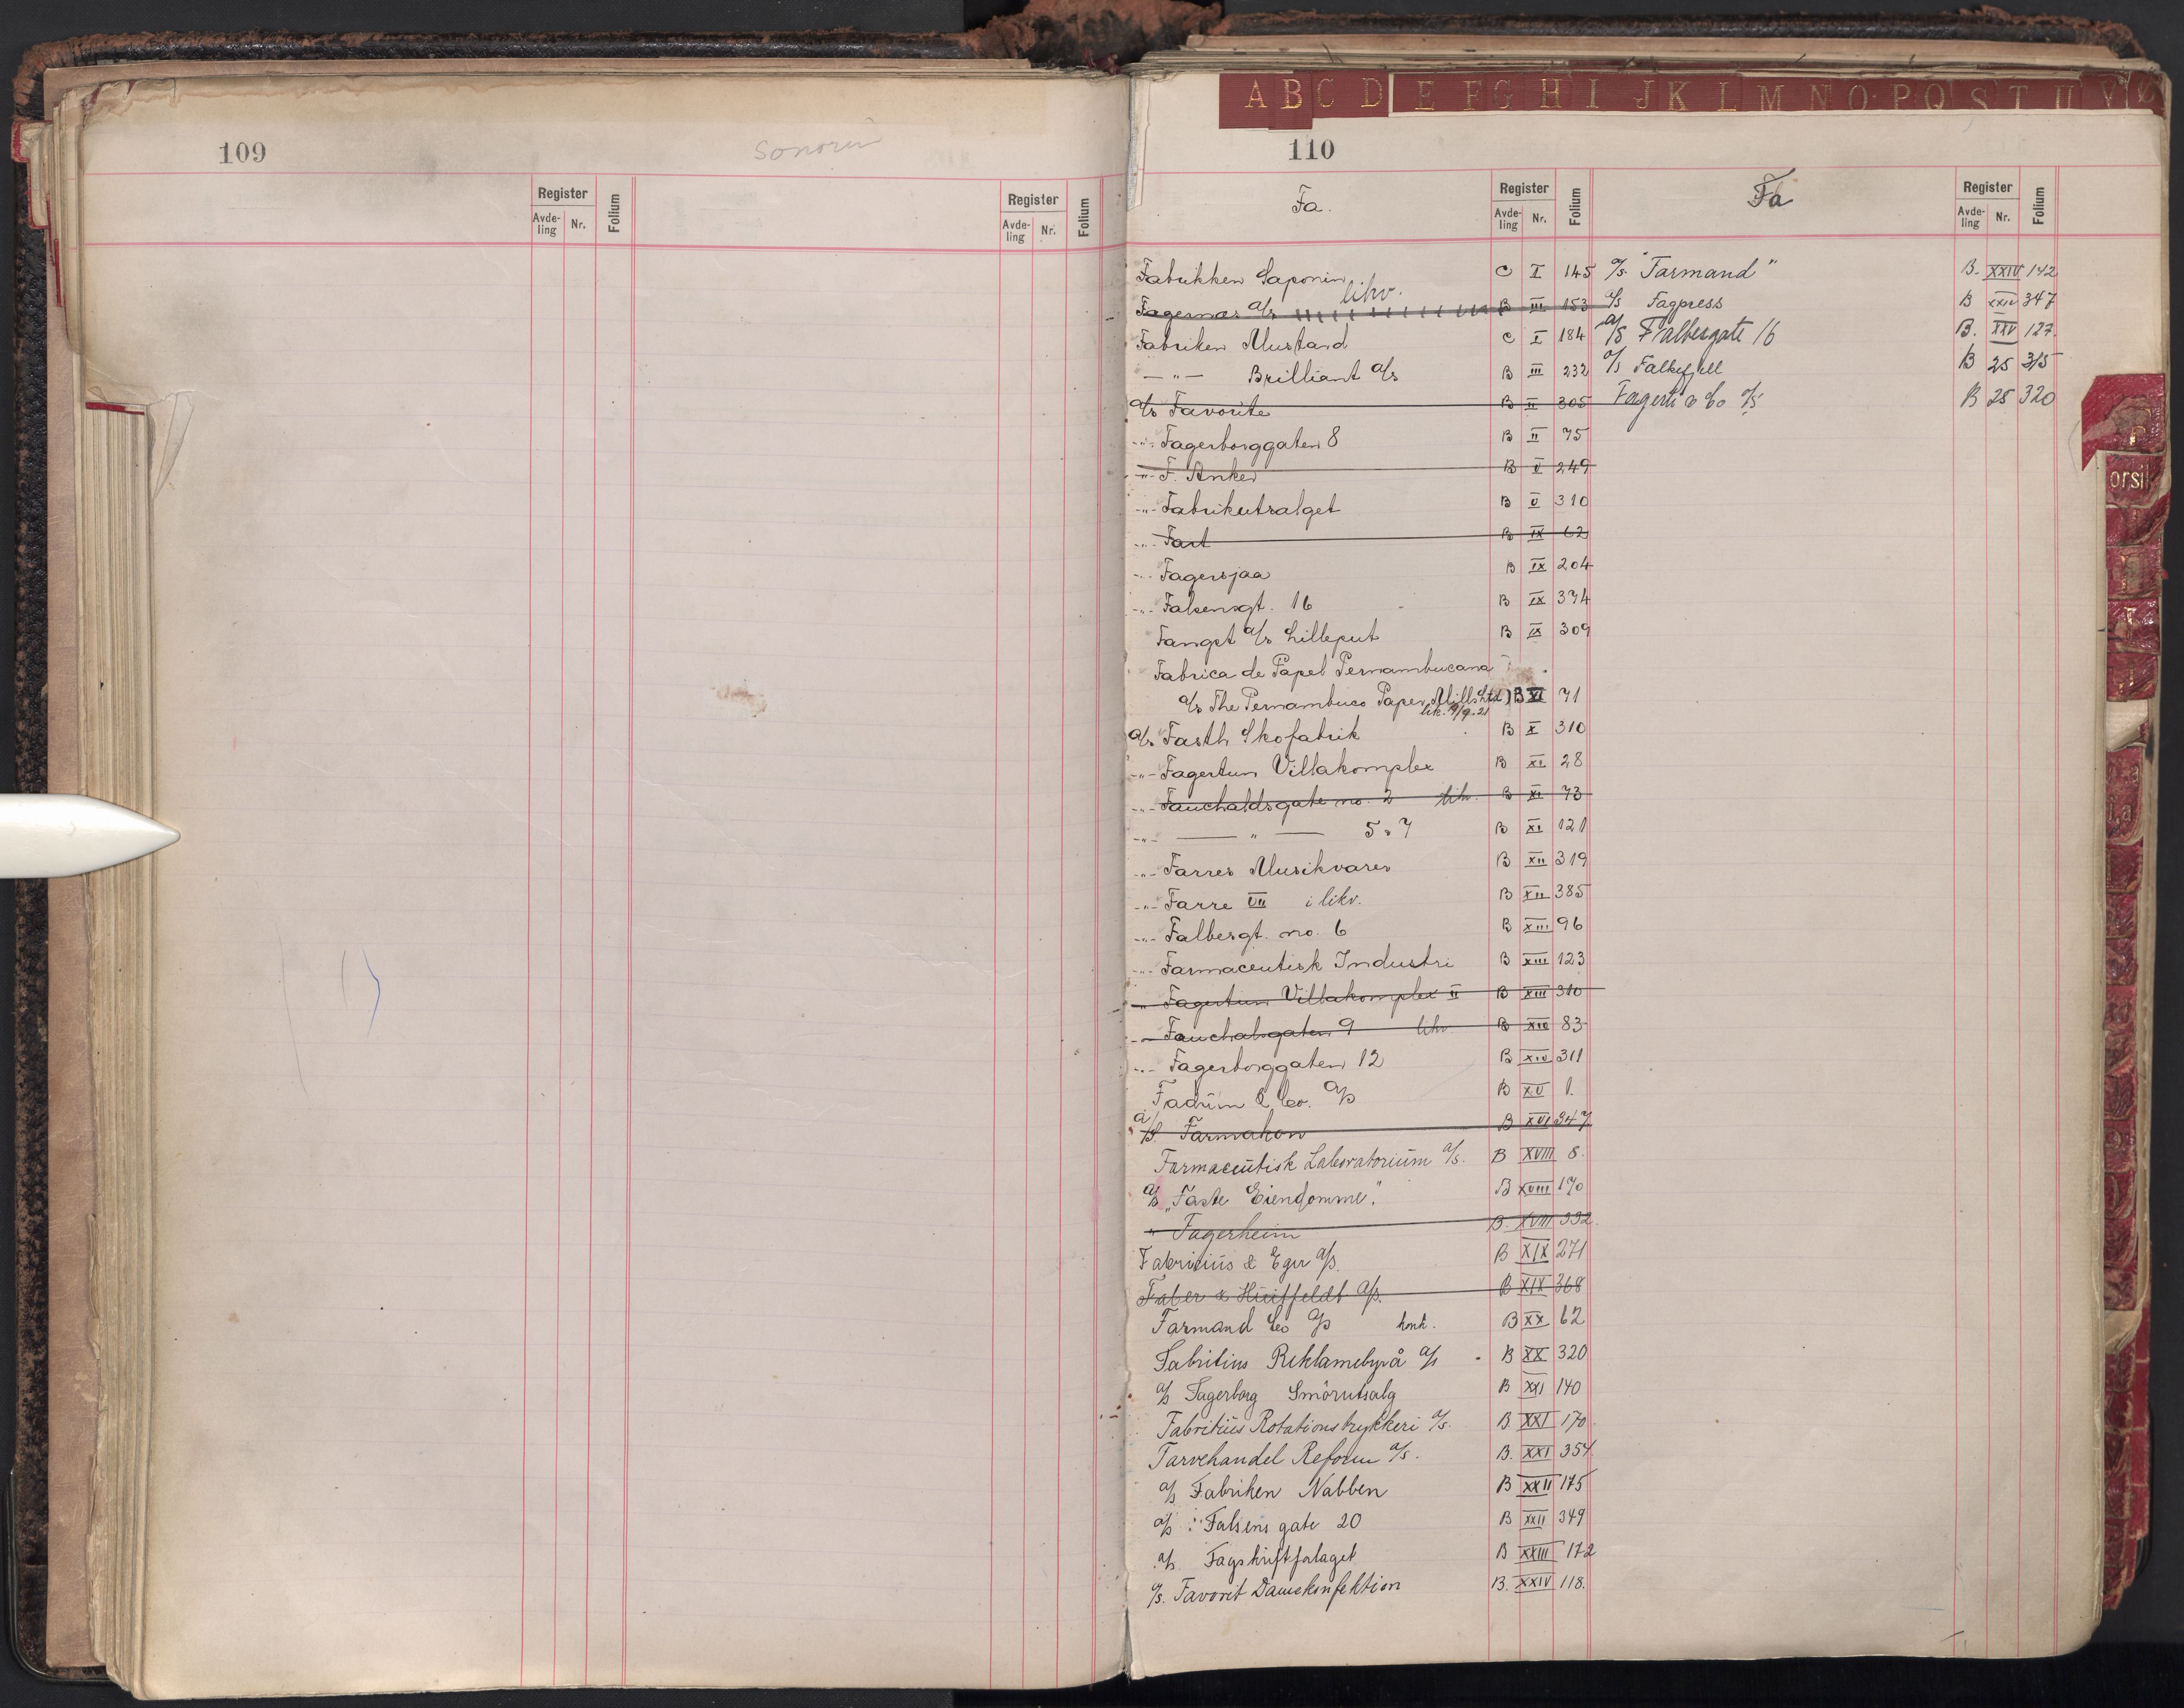 109
Register
Avde-ling Nr. Folium
Register
Avde-ling Nr. Folium
A B C D E F G H I J K L M N O P Q S T U V Ø
110
Fa.
Register
Avde-ling Nr. Folium
Fa
Register
Avde-ling Nr. Folium
Fabrikken Saponin C I 145
Fagernæs a/s likv. B III 153
Fabriken Mustard C I 184
— " — Brilliant a/s B III 232
a/s Favorite B II 305
-"- Fagerborggaten 8 B II 75
-"- F. Anker B V 249
-"- Fabrikutsalget B V 310
-"- Fart B IX 62
-"- Fagersjaa B IX 204
-"- Falsensgt. 16 B IX 374
Fangst a/s Lilleput B IX 309
Fabrica de Papel Pernambucana
a/s The Pernambuco Paper Mills Ltd) B VI 71
lik. 9/9-21
a/s Fasth Skofabrik B X 310
-"- Fagertun Villakomplex B XI 28
-"- Fauchaldsgate no. 2 likv. B XI 73
-"- — " — 5 & 7 B XI 121
-"- Farres Musikvarer B XII 319
-"- Farre VII i likv. B XII 385
-"- Falbesgt. no. 6 B XIII 96
-"- Farmaceutisk Industri B XIII 123
-"- Fagertun Villakomplex II B XIII 310
-"- Fauchalsgaten 9 likv. B XIV 83
-"- Fagerborggaten 12 B XIV 311
Fadum & Co. A/S B XV 1.
A/S. Farmakon B XVI 347
Farmaceutisk Laboratorium A/S. B XVIII 8.
A/S „Faste Eiendomme." B XVIII 170
" Fagerheim B. XVIII 332.
Fabricius & Eger A/S. B XIX 271
Faber & Huitfeldt A/S. B XIX 368
Farmand Co A/S konk. B XX 62
Fabritius Reklamebyrå A/S B XX 320
A/S Fagerborg Smörutsalg B XXI 140
Fabritius Rotationstrykkeri A/S. B. XXI 170
Farvehandel Reform A/S. B. XXI 354.
A/S Fabriken Nabben B XXII 175
A/S Falsens gate 20 B XXII 349
A/S. Fagskriftforlaget B XXIII 172
A/S. Favorit Damekonfektion B. XXIV 118.
A/S. "Farmand" B. XXIV 142
A/S Fagpress B XXIV 347
A/S Falbesgate 16 B. XXV 127.
A/S Falkefjell B 25 315
B 25 320
orsik